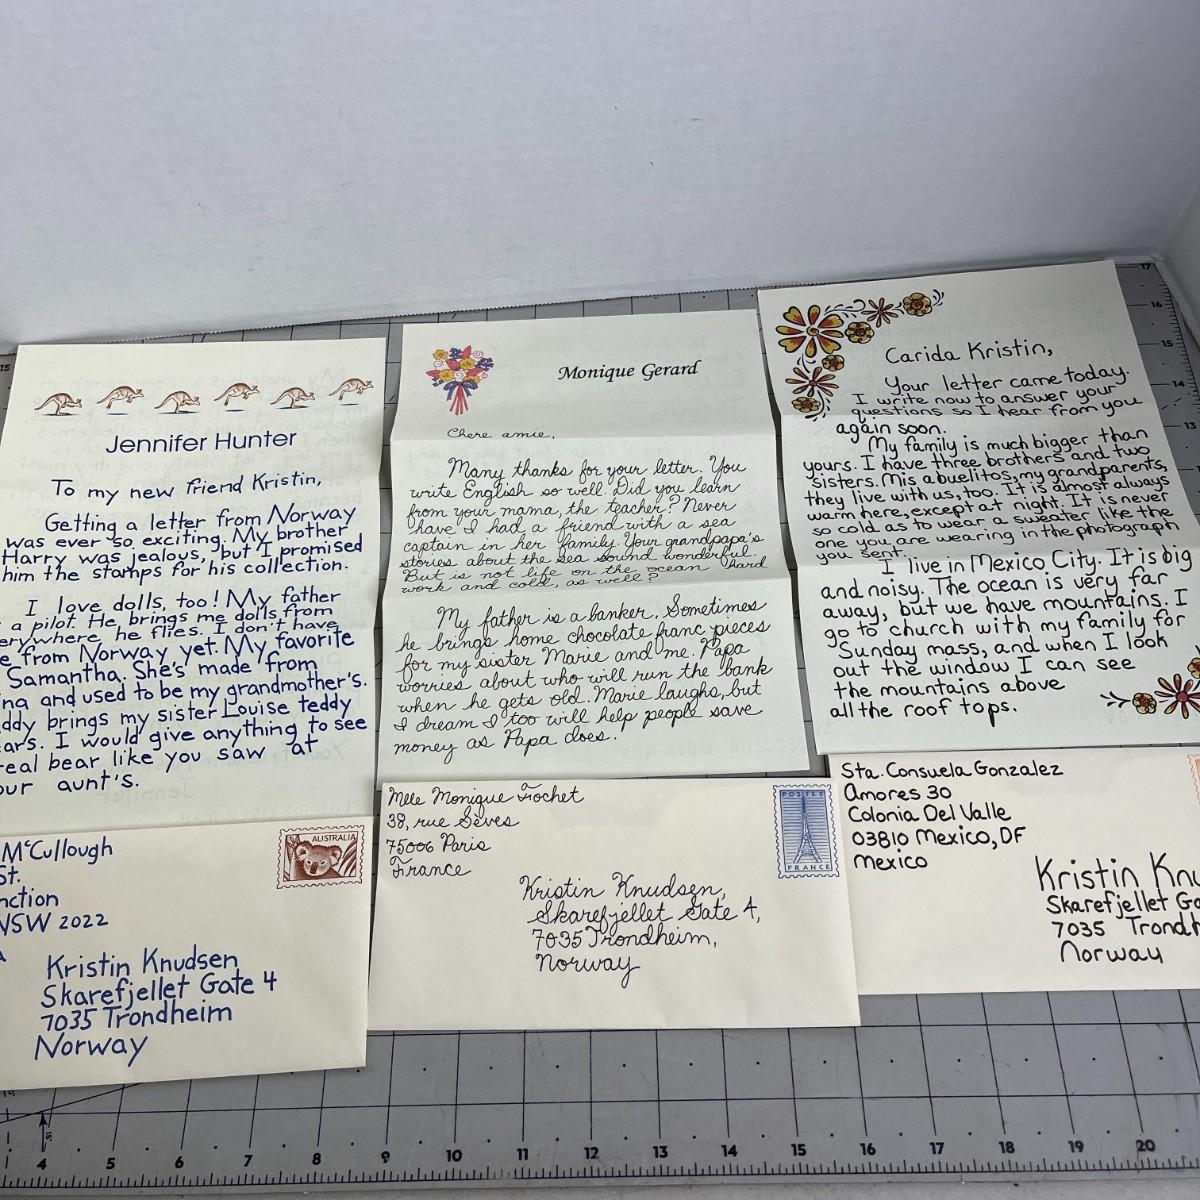 Jennifer Hunter
To my new friend Kristin,
Getting a letter from Norway
was ever so exciting. My brother
Harry was jealous, but I promised
him the stamps for his collection.
I love dolls, too! My father
a pilot. He brings me dolls from
he flies. I don't have
from Norway yet. My favorite
Samantha. She's made from
and used to be my grandmother's.
brings my sister Louise teddy
I would give anything to see
real bear like you saw at
aunt's.
McCullough
St.
NSW 2022
AUSTRALIA
Kristin Knudsen
Skarefjellet Gate 4
7035 Trondheim
Norway
Monique Gerard
Chere amie,
Many thanks for your letter. You
write English so well. Did you learn
from your mama, the teacher? Never
have I had a friend with a sea
captain in her family. Your grandpapa's
stories about the sea sound wonderful.
But is not life on the ocean hard
work and cold, as well?
My father is a banker. Sometimes
he brings home chocolate franc pieces
for my sister Marie and me. Papa
worries about who will run the bank
when he gets old. Marie laughs, but
I dream I too will help people save
money as Papa does.
Monique Frochet
38, rue Sèves
75006 Paris
France
POSTES
FRANCE
Kristin Knudsen,
Skarefjellet Gate 4,
7035 Trondheim,
Norway
Carida Kristin,
Your letter came today.
I write now to answer your
questions so I hear from you
again soon.
My family is much bigger than
yours. I have three brothers and two
sisters. Mis abuelitos, my grandparents,
they live with us, too. It is almost always
warm here, except at night. It is never
so cold as to wear a sweater like the
one you are wearing in the photograph
you sent.
I live in Mexico City. It is big
and noisy. The ocean is very far
away, but we have mountains. I
go to church with my family for
Sunday mass, and when I look
out the window I can see
the mountains above
all the roof tops.
Sta. Consuela Gonzalez
Amores 30
Colonia Del Valle
03810 Mexico, DF
Mexico
Kristin
Skarefjellet
7035
Norway
17
16
15
14
13
15
4 5 6 7 8 9 10 11 12 13 14 15 16 17 18 19 20